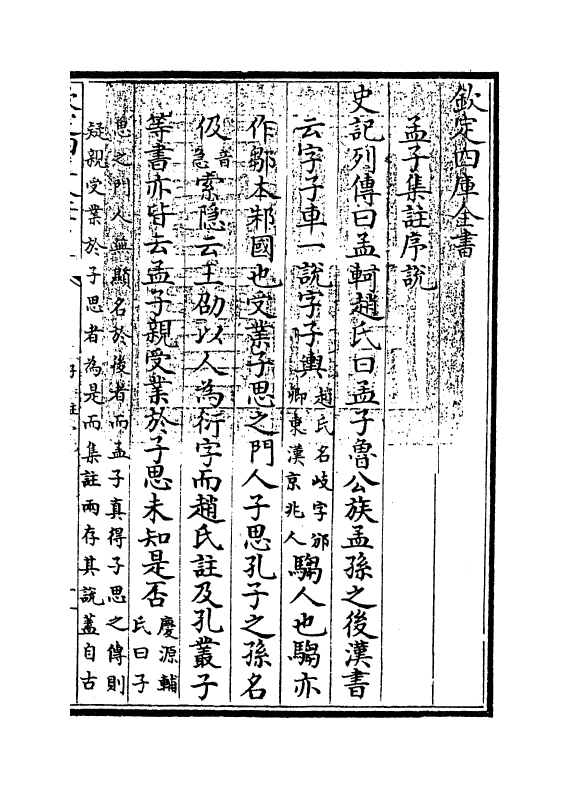 欽定四庫全書
孟子集註序說
史記列傳曰孟軻趙氏曰孟子魯公族孟孫之後漢書
云字子車一說字子輿趙氏名岐字邠卿東漢京兆人騶人也騶亦
作鄒本邾國也受業子思之門人子思孔子之孫名
伋音急索隱云王劭以人為衍字而趙氏註及孔叢子
等書亦皆云孟子親受業於子思未知是否慶源輔氏曰子
思之門人無顯名於後者而孟子真得子思之傳則
疑親受業於子思者為是而集註兩存其說蓋自古